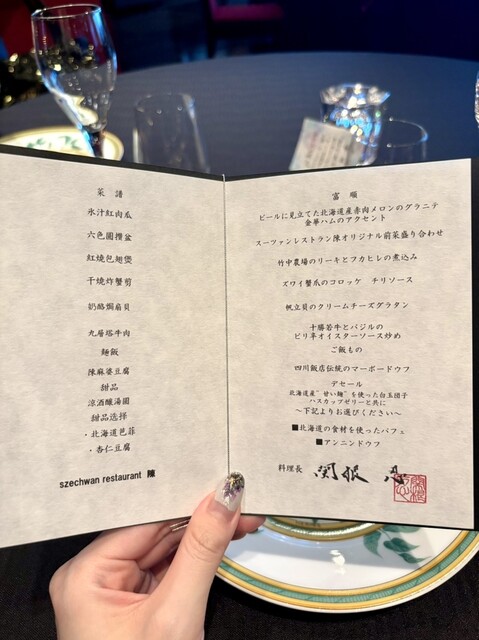 菜 譜
氷汁紅肉瓜
六色圍攢盆
紅燒包翅煲
干燒炸蟹剪
奶酪焗扇貝
九層塔牛肉
麺飯
陳麻婆豆腐
甜品
涼酒釀湯圓
甜品选择
・北海道芭菲
・杏仁豆腐
szechwan restaurant 陳
富 順
ビールに見立てた北海道産赤肉メロンのグラニテ
金華ハムのアクセント
スーツァンレストラン陳オリジナル前菜盛り合わせ
竹中農場のリーキとフカヒレの煮込み
ズワイ蟹爪のコロッケ チリソース
帆立貝のクリームチーズグラタン
十勝若牛とバジルの
ピリ辛オイスターソース炒め
ご飯もの
四川飯店伝統のマーボードウフ
デセール
北海道産"甘い麹"を使った白玉団子
ハスカップゼリーと共に
～下記よりお選びください～
■北海道の食材を使ったパフェ
■アンニンドウフ
料理長 関根